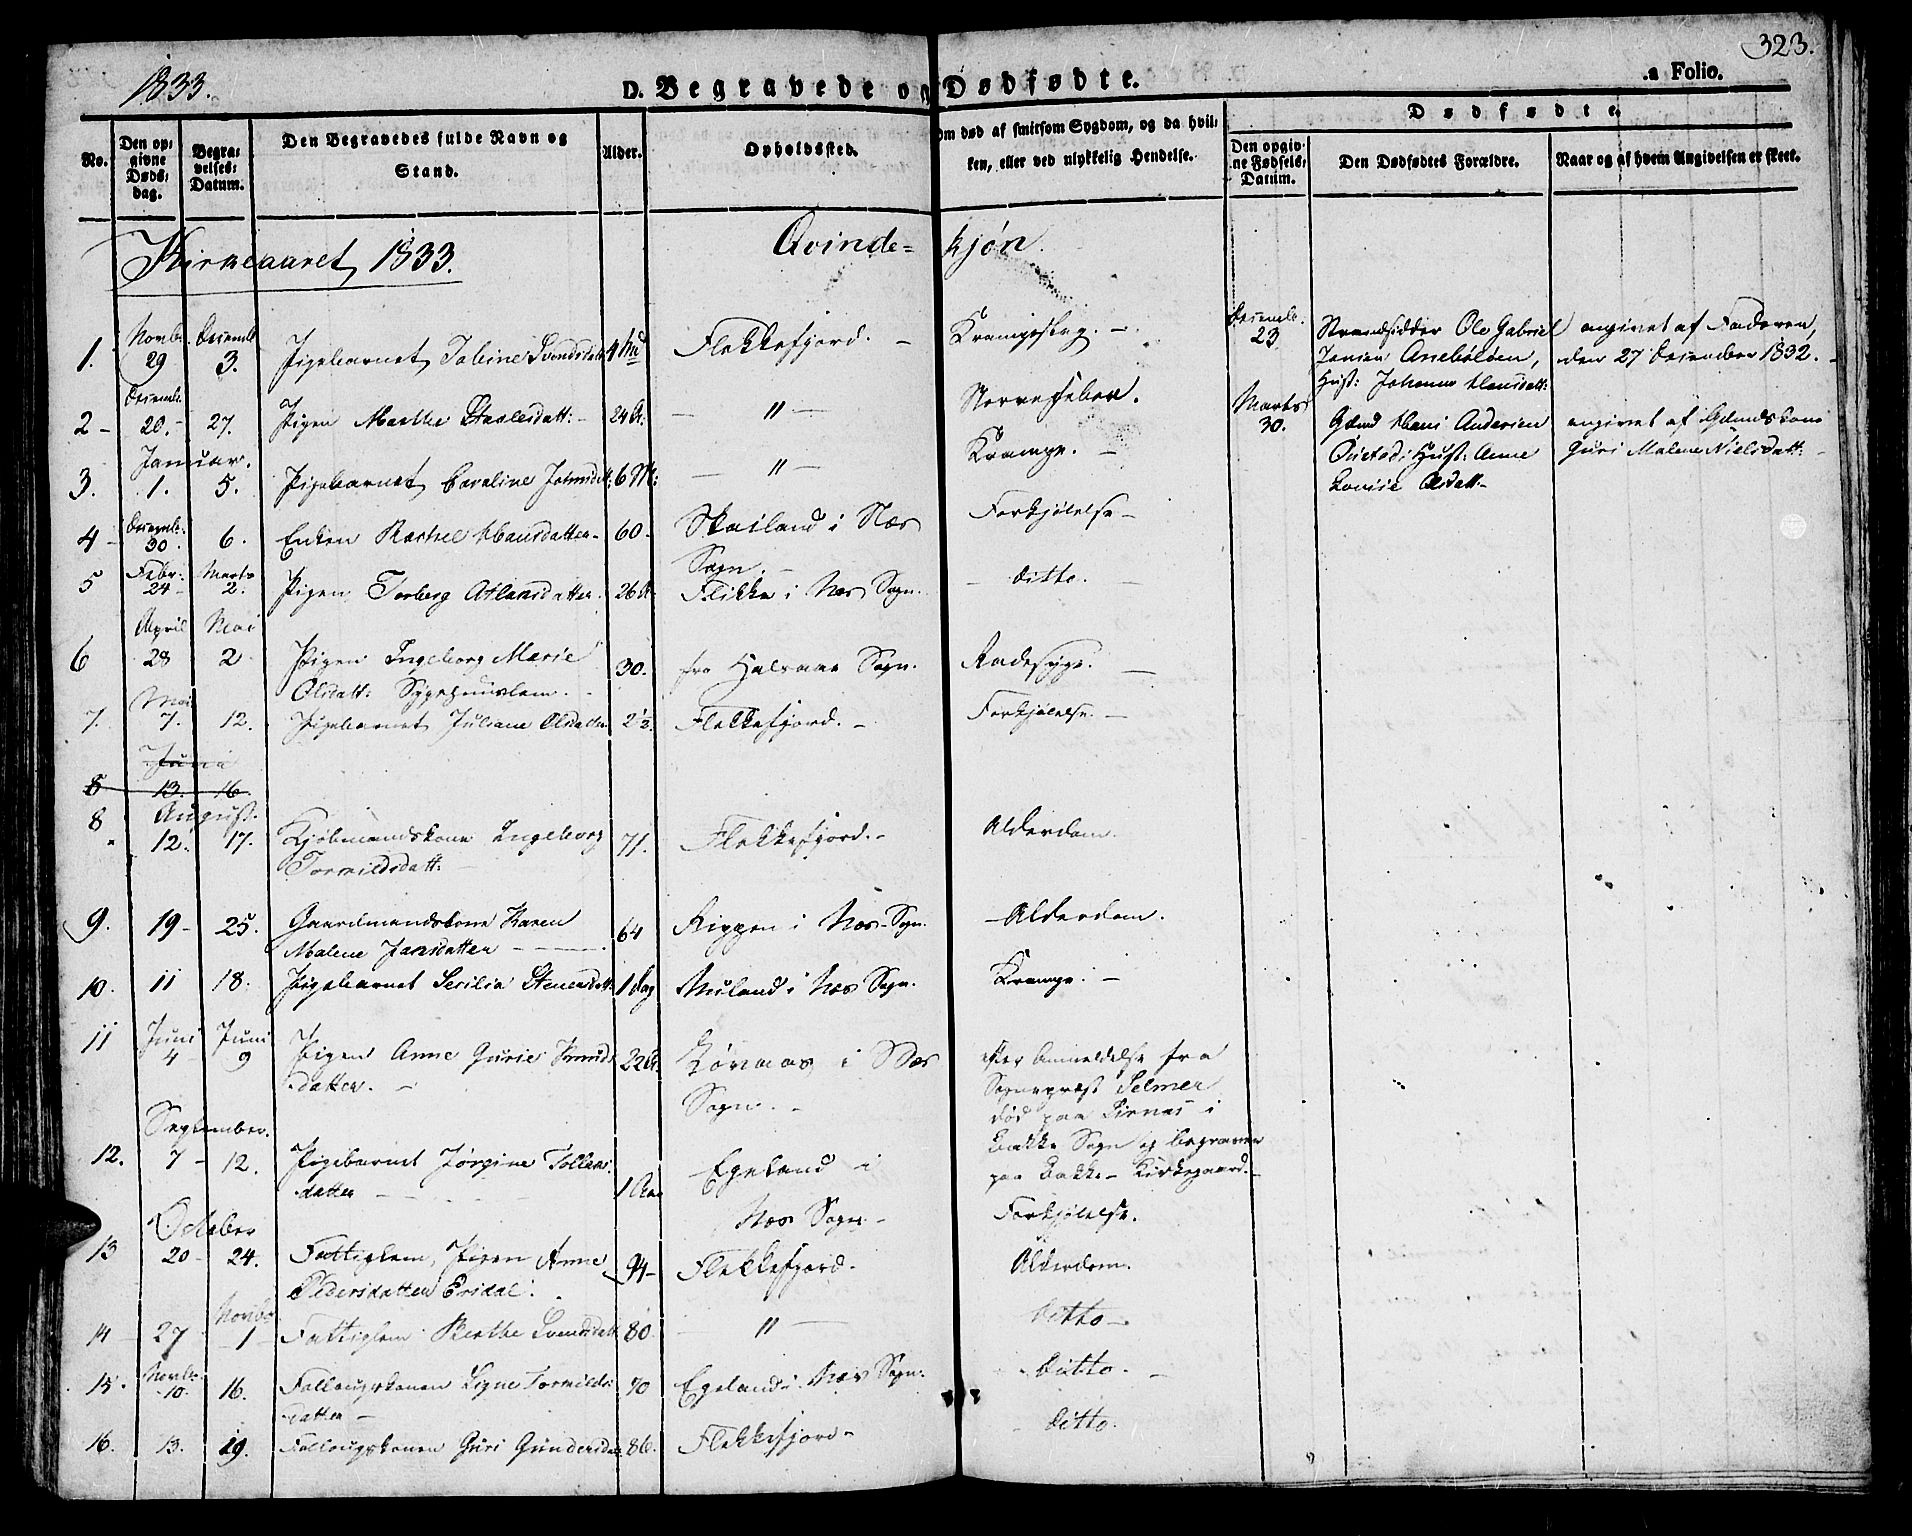 323.
1833.
D. Begravede og Dødfødte.
Folio.
No.
Den opgivne Døds-dag.
Begravelses-Datum.
Den Begravedes fulde Navn og Stand.
Alder.
Opholdssted.
Om død af smitsom Sygdom, og da hvilken, eller ved ulykkelig Hendelse.
Dødfødte.
Den opgivne Fødsels-Datum.
Den Dødfødtes Forældre.
Naar og af hvem Angivelsen er skeet.
Kirkeaaret 1833.
Qvinde= kjøn.
1. Novbr. 29 Decemb. 3. Pigebarnet Tobine Svendsdatt. Flekkefjord. -
Decembr. 23 Strandsidder Ole Gabriel angivet af Faderen,
Jensen den 27 December 1832. -
Hust: Johanne Hansdatt:
2 - Decemb. 20. - 27. Pigen Marthe Staalesdatt: - 24 A. - " - Nervefeber.
Marts 30. Gmd Hans Andersen angivet af Gdmdskone
Hust: Anne Guri Malene Nielsdatt: -
Lovise Olsdatt: -
3. Januar. 1. 5. Pigebarnet Caroline 6 M: - " - Krampe. -
4 - Decemb. 30. 6. Enken Rachel Hansdatter - 60. Skailand i Næs Sogn. - Forkjølelse -
5 Febr: 24 - Marts 2. Pigen Torberg Atlaksdatter. 26 A. Flikke i Næs Sogn. - ditto. -
6 April 28 Mai 2 Pigen Ingeborg Marie
Olsdatt: Sygehuuslem. - 30. fra Halsaae Sogn. Radesyge. -
7. Mai 7. 12. Pigebarnet Juliane Olsdatter 2½. Flekkefjord. - Forkjølelse. -
Juni
8 13. 16.
8 August. 12. 17. Kjøbmandskone Ingeborg
Tormildsdatt: 71. Flekkefjord. - Alderdom.
9. 19 - 25. Gaardmandskone Karen
Malene Jansdatter - 64 i Næs Sogn. - Alderdom.
10. 11 18. Pigebarnet Secilia 1 Dag Nuland i Næs Sogn. Krampe. -
11 Juni 4 - Juni 9 Pigen Anne Gurie Knuds
datter. - 22 A. i Næs Sogn. -
efter Anmeldelse fra
Sognepræst Selmer
død paa Sirnes i
Bakke Sogn og begraven
paa Bakke - Kirkegaard. -
12. September. 7 - 12. Pigebarnet Jørgine Tollens
datter - 1 Aar Egeland i
Næs Sogn - Forkjølelse.
13 October 20 - 24. Fattiglem, Pigen Anne
Pedersdatter 94 - Flekkefjord. Alderdom.
14 27 Novbr. 1 Fattiglem Berthe Svendsdatt 80 - " - Ditto -
15. Novbr. 10. 16. Follougskonen Signe Tormilds
datter - 70 Egeland i Næs Sogn. Ditto -
16. 13. 19. Follougskonen Guri Gundersdatt. 86. Flekkefjord - Ditto.